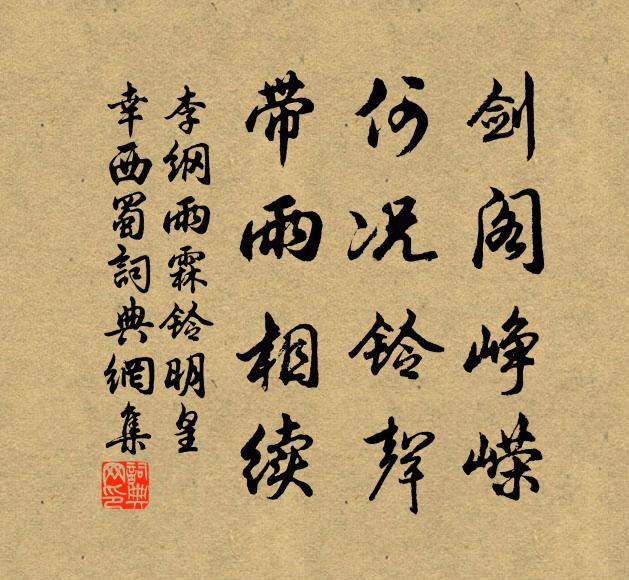 剑阁峥嵘
何况铃聲
带雨相续
李纲雨霖铃明皇
幸西蜀詞典網集
詞典网印